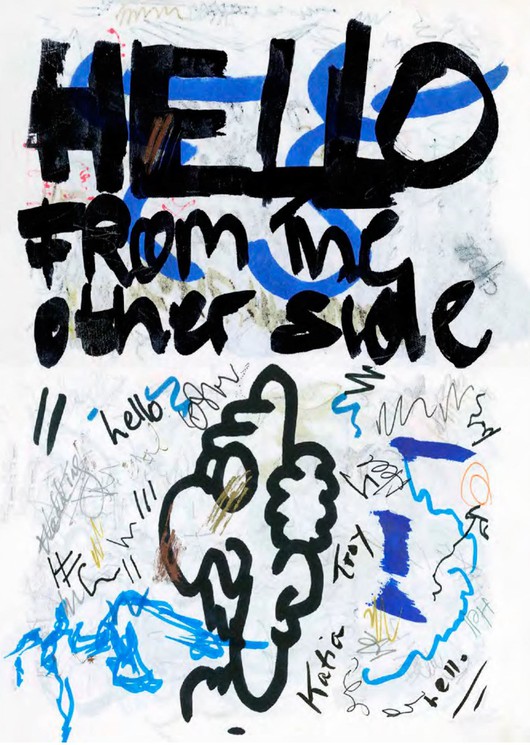 HELLO
FROM THE
other side
hello
Troy
Katia
hello.